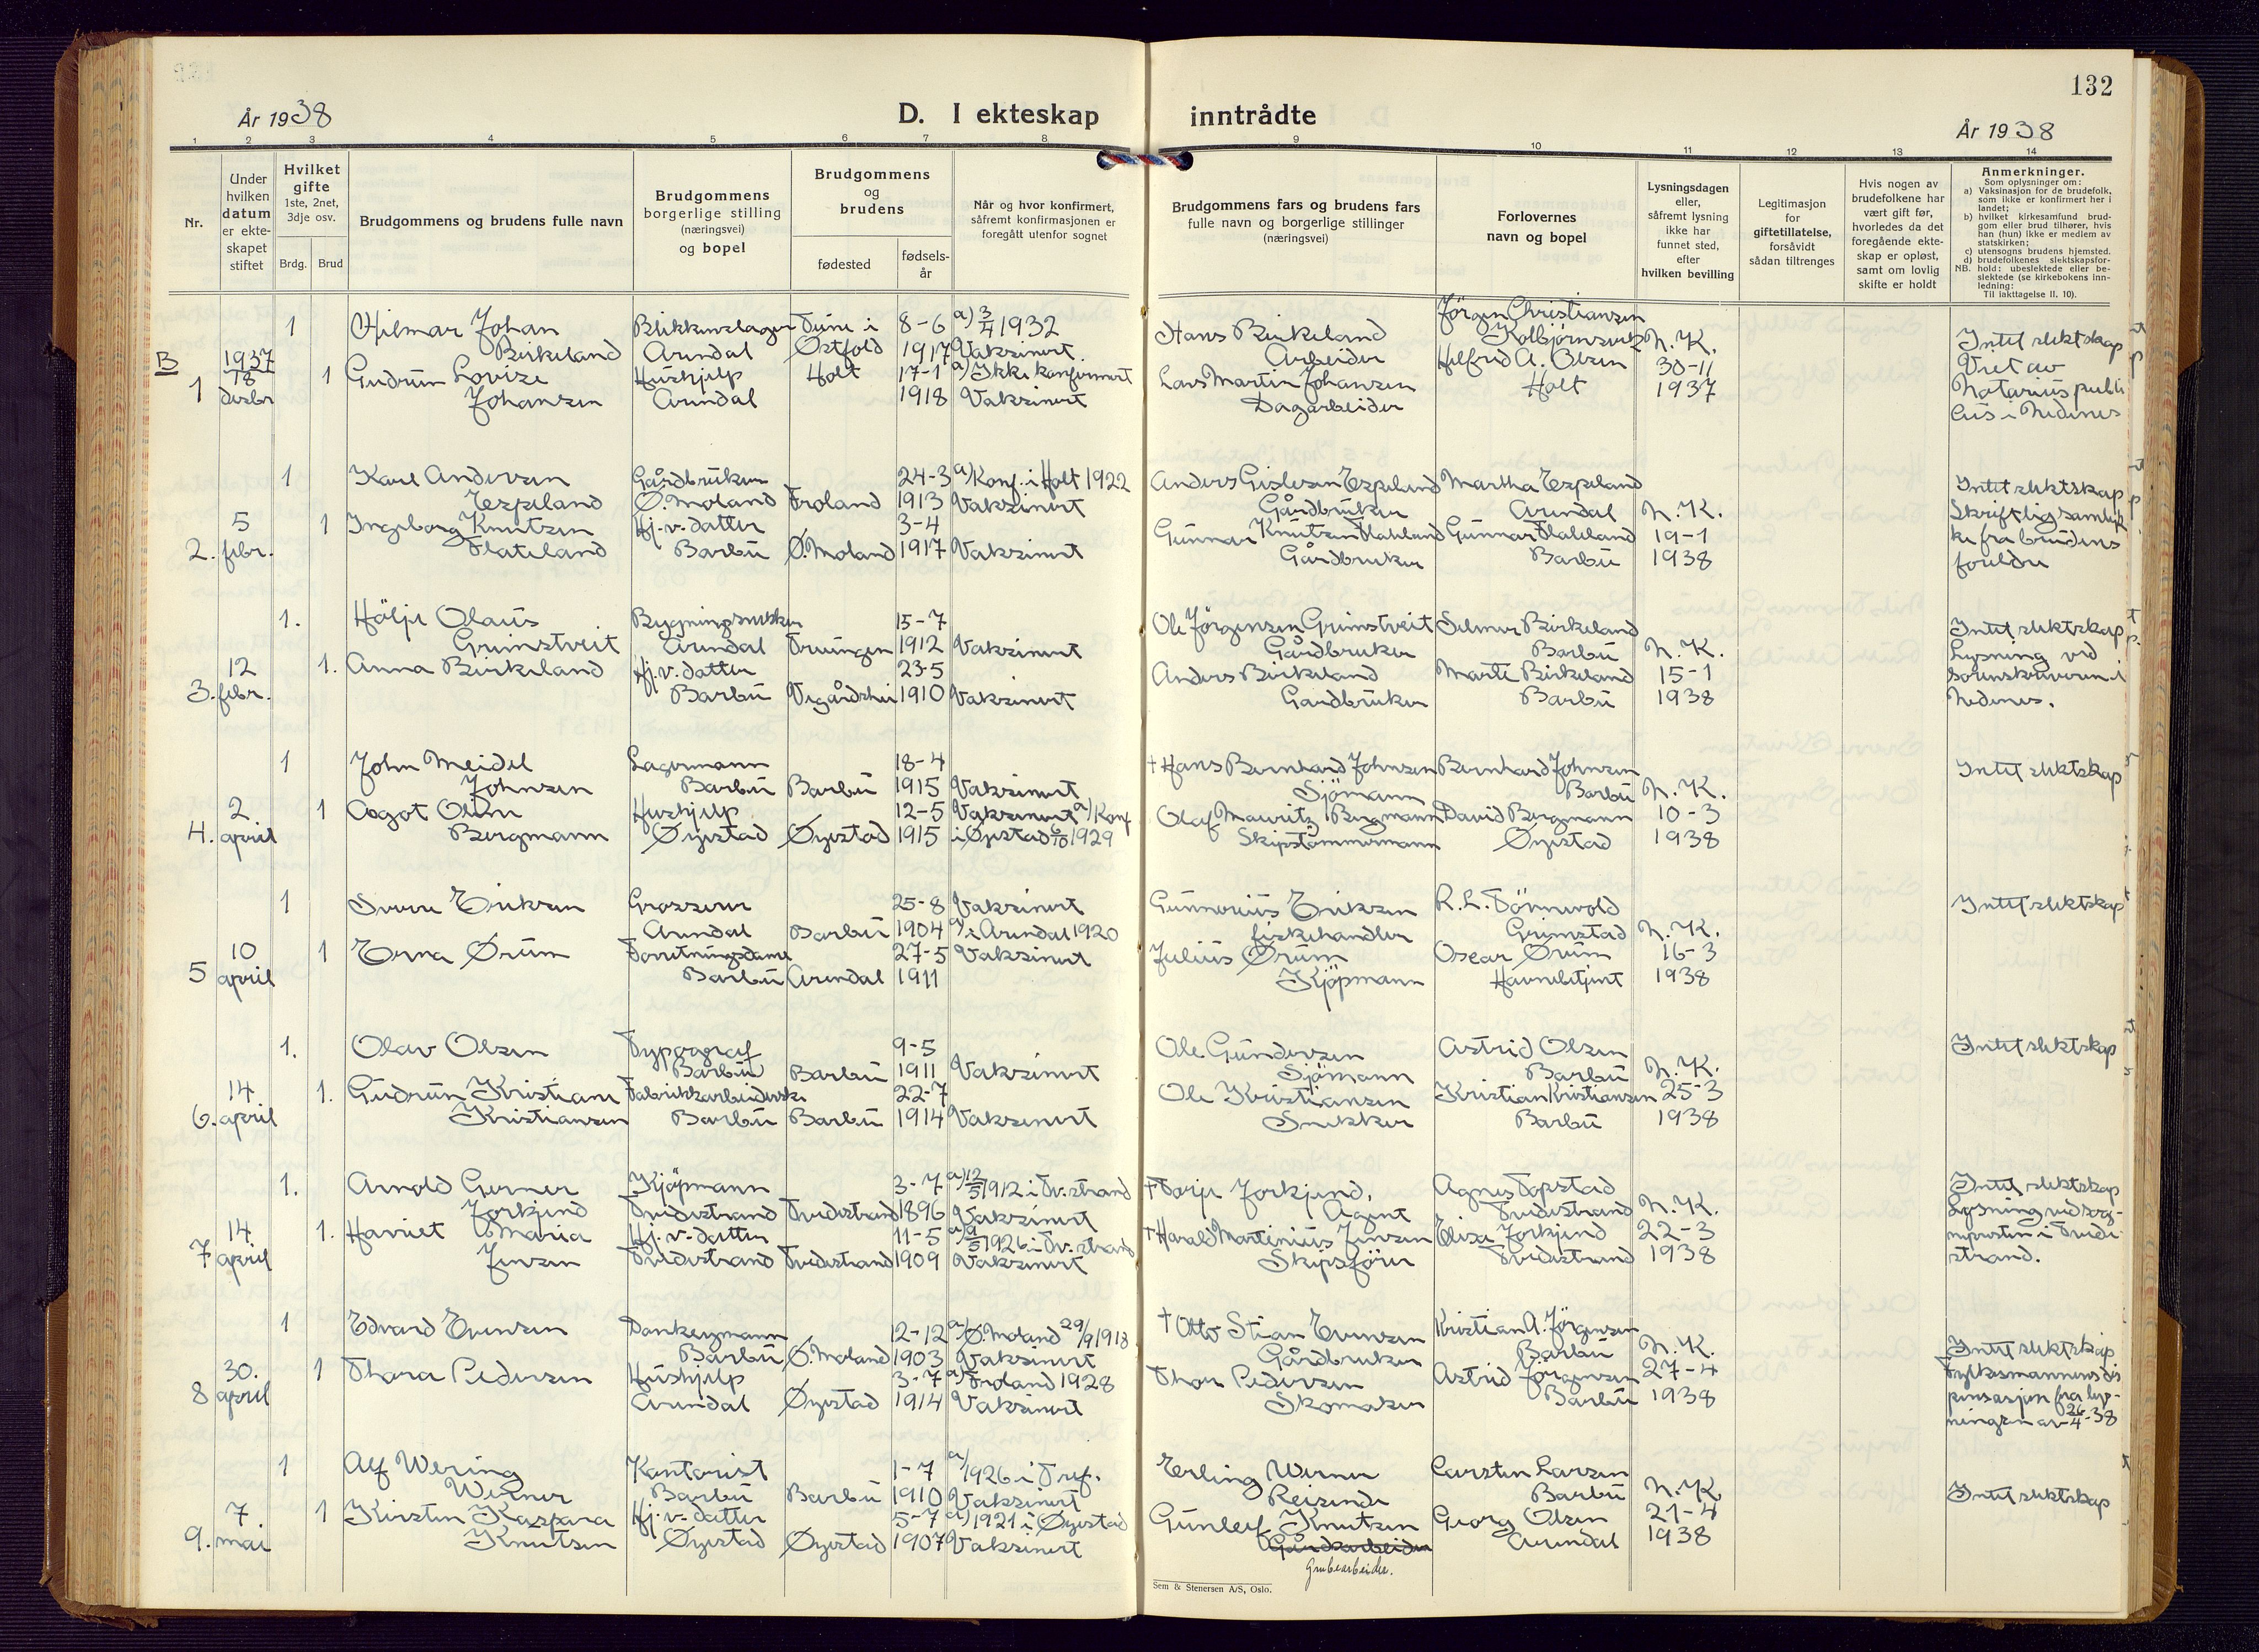 132
År 1938
D. I ekteskap inntrådte
År 1938
1 2 3 4 5 6 7 8 9 10 11 12 13 14
Nr.
Under hvilken datum er ekteskapet stiftet
Hvilket gifte 1ste, 2net, 3dje osv.
Brdg. Brud
Brudgommens og brudens fulle navn
Brudgommens borgerlige stilling (næringsvei) og bopel
Brudgommens og brudens
fødested
fødselsår
Når og hvor konfirmert, såfremt konfirmasjonen er foregått utenfor sognet
Brudgommens fars og brudens fars fulle navn og borgerlige stillinger (næringsvei)
Forlovernes navn og bopel
Lysningsdagen eller, såfremt lysning ikke har funnet sted, efter hvilken bevilling
Legitimasjon for giftetillatelse, forsåvidt sådan tiltrenges
Hvis nogen av brudefolkene har vært gift før, hvorledes da det foregående ekteskap er opløst, samt om lovlig skifte er holdt
Anmerkninger.
Som oplysninger om:
a) Vaksinasjon for de brudefolk, som ikke er konfirmert her i landet;
b) hvilket kirkesamfund brudgom eller brud tilhører, hvis han (hun) ikke er medlem av statskirken;
c) utensogns brudens hjemsted.
d) brudefolkenes slektskapsforhold: ubeslektede eller beslektede (se kirkebokens innledning:
NB.
Til iakttagelse II. 10).
B
1 1937 18 desbr
1 Hilmar Johan Birkeland Blikkenslager Arendal Tune i Østfold 8-6 1917 a) 3/4 1932 Vaksinert.
1 Gudrun Lovise Johansen Hushjelp Arendal Holt 17-1 1918 a) Ikke konfirmert Vaksinert
Hans Birkeland Arbeider
Lars Martin Johansen Dagarbeider
Jörgen Christiansen Kolbjörnsvik
Helfrid A. Olsen Holt
N.K. 30-11 1937
Intet slektskap
Viet av
Notarius publi
cus i Nedenes
2. 5 febr.
1 Karl Andersen Espeland Gårdbruker Ø. Moland Froland 24-3 1913 a) Konf. i Holt 1922 Vaksinert
1 Ingeborg Knutsen Flateland Hj.v. datter Barbu Ø. Moland 3-4 1917 Vaksinert
Anders Gislesen Espeland Gårdbruker
Gunnar Knutsen Flateland Gårdbruker
Martha Espeland Arendal
Gunnar Flateland Barbu
N.K. 19-1 1938
Intet slektskap
Skriftlig samtyk
ke fra brudens
foreldre
3. 12 febr.
1. Hälje Olaus Grimstveit Bygningssnekker Arendal Treungen 15-7 1912 Vaksinert
1. Anna Birkeland Hj.v. datter Barbu Vegårdshei 23-5 1910 Vaksinert
Ole Jörgensen Grimstveit Gårdbruker
Anders Birkeland Gardbruker
Selmer Birkeland Barbu
Marte Birkeland Barbu
N.K. 15-1 1938
Intet slektskap
Lysning ved
sorenskriveren i
Nedenes.
4. 2 april
1 John Meidel Johnsen Lagermann Barbu Barbu 18-4 1915 Vaksinert
1 Aagot Olum Bergmann Hushjelp Øyestad Øyestad 12-5 1915 Vaksinert a) Konf i Øyestad 6/10 1929
† Hans Bernhard Johnsen Sjömann
Olaf Mauritz Bergmann Skipstömmermann
Bernhard Johnsen Barbu
David Bergmann Øyestad
N.K. 10-3 1938
Intet slektskap
5 10 april
1 Sverre Eriksen Grosserer Arendal Barbu 25-8 1904 Vaksinert a) i Arendal 1920
1 Erna Ørum Forretningsdame Barbu Arendal 27-5 1911 Vaksinert
Gunnerius Eriksen fiskehandler
Julius Ørum Kjöpmann
R.L. Törnvold Grimstad
Oscar Ørum Havnebetjent
N.K. 16-3 1938
Intet slektskap
6. 14 april
1. Olav Olsen Typograf Barbu Barbu 9-5 1911 Vaksinert
1. Gudrun Kristiane Kristiansen Fabrikkarbeiderske Barbu Barbu 22-7 1914 Vaksinert
Ole Gundersen Sjömann
Ole Kristiansen Snekker
Astrid Olsen Barbu
Kristian Kristiansen Barbu
N.K. 25-3 1938
Intet slektskap
7 14 april
1. Arnold Gerner Jorkjend Kjöpmann Tvedestrand Tvedestrand 3-7 1896 a) 12/5 1912 i Tv.strand Vaksinert
1. Harriet Maria Jensen Hj.v. datter Tvedestrand Tvedestrand 11-5 1909 a) 9/5 1926 i Tv.strand Vaksinert
† Terje Jorkjend, Agent
† Harald Martinius Jensen Skipsförer
Agnes Topstad Tvedestrand
Elise Jorkjend Tvedestrand
N.K. 22-3 1938
Intet slektskap
Lysning ved sog-
nepresten i Tvede
strand.
8 30. april
1 Edvard Evensen Dankergmann Barbu Ø. Moland 12-12 1903 a) Ø. Moland 29/9 1918 Vaksinert
1 Thora Pedersen Hushjelp Arendal Øyestad 3-7 1914 a) Froland 1928 Vaksinert
† Otto Stian Evensen Gårdbruker
Thor Pedersen Skomaker
Kristian A. Jörgensen Barbu
Astrid Jörgensen Barbu
N.K. 27-4 1938
Intet slektskap
Fylkesmannens dis
pensasjon fra lys-
ningen av 26/4-38
9. 7 mai
1 Alf Wering Werner Kontorist Barbu Barbu 1-7 1910 a/ 1926 i Tref. Vaksinert
1 Kirsten Kaspara Knutsen Hj.v. datter Øyestad Øyestad 5-7 1907 a) 1921 i Øyestad Vaksinert
Erling Werner Reisende
Gunleif Knutsen Gårdsarbeider Grubearbeider.
Carsten Larsen Barbu
Georg Olsen Arendal
N.K. 21-4 1938
Intet slektskap
Sem & Stenersen A/S, Oslo.